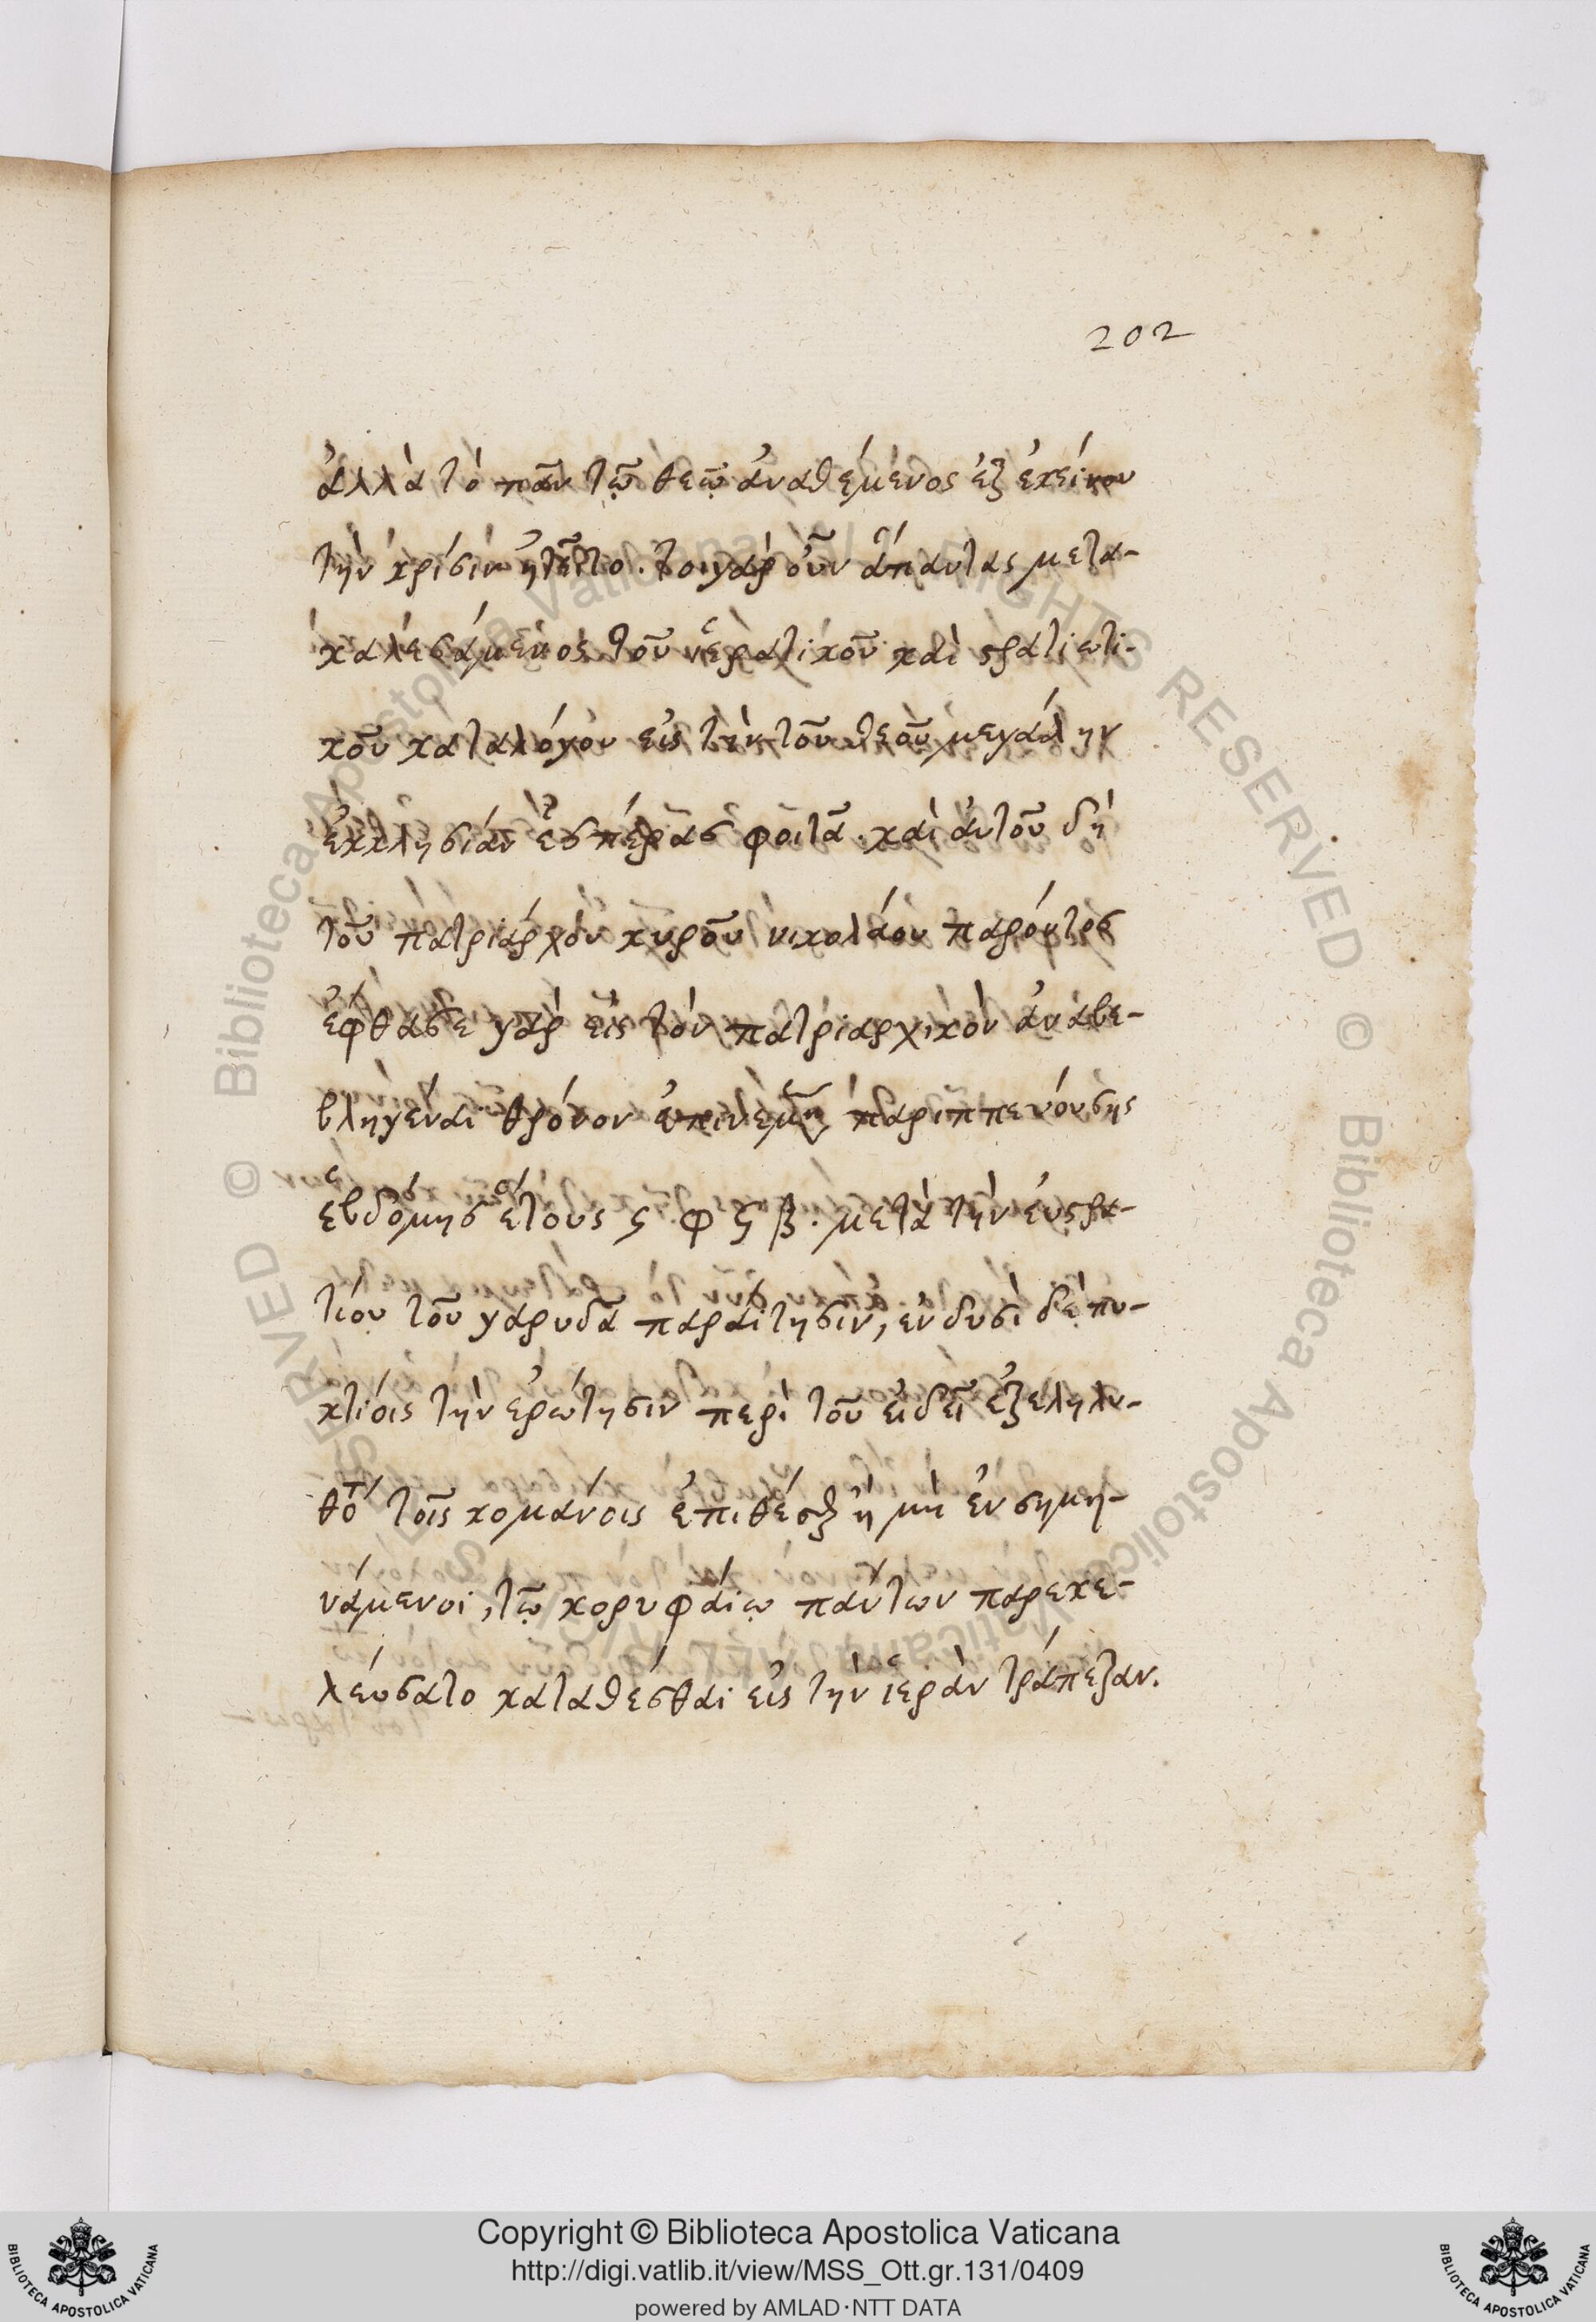 202
ἀλλὰ τὸ πᾶν τῷ θεῷ ἀναθέμενος ἐξ ἐκείνου
τὴν κρίσιν ᾐτεῖτο. τοιγὰρ οὖν ἅπαντας μετα-
καλεσάμενος τοῦ ἱερατικοῦ καὶ στρατιωτι-
κοῦ καταλόγου εἰς τὴν τοῦ θεοῦ μεγάλην
ἐκκλησίαν ἑσπέρας φοιτᾶ. καὶ αὐτοῦ δὴ
τοῦ πατριάρχου κυροῦ νικολάου παρόντος
ἔφθασε γὰρ εἰς τὸν πατριαρχικὸν ἀναβε-
βληγέναι θρόνον παριππευούσης
ἑβδόμης ἔτους ς φ ϟ β. μετὰ τὴν εὐστρα-
τίου τοῦ γαρυδᾶ παραίτησιν, ἐν δυσὶ δὲ πυ-
κτίοις τὴν ἐρώτησιν περὶ τοῦ εἰ δεῖ ἐξεληλυ-
θότ τοῖς κομάνοις ἐπιθέσθαι ἢ μὴ ἐνσημη-
νάμενοι, τῷ κορυφαίῳ πάντων παρεκε-
λεύσατο καταθέσθαι εἰς τὴν ἱερὰν τράπεζαν.
Copyright © Biblioteca Apostolica Vaticana
http://digi.vatlib.it/view/MSS_Ott.gr.131/0409
powered by AMLAD·NTT DATA
BIBLIOTECA APOSTOLICA VATICANA
BIBLIOTECA APOSTOLICA VATICANA
© Biblioteca Apostolica Vaticana ALL RIGHTS RESERVED
© Biblioteca Apostolica Vaticana ALL RIGHTS RESERVED